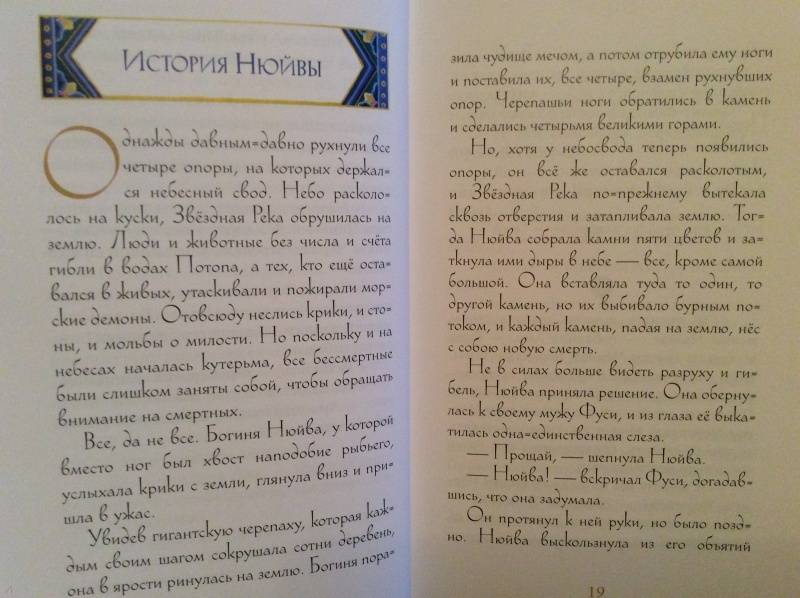 История Нюйвы
Однажды давным-давно рухнули все
четыре опоры, на которых держал-
ся небесный свод. Небо раскололо-
лось на куски, Звёздная Река обрушилась на
землю. Люди и животные без числа и счёта
гибли в водах Потопа, а тех, кто ещё оста-
вался в живых, утаскивали и пожирали мор-
ские демоны. Отовсюду неслись крики, и сто-
ны, и мольбы о милости. Но поскольку и на
небесах началась кутерьма, все бессмертные
были слишком заняты собой, чтобы обращать
внимание на смертных.
Все, да не все. Богиня Нюйва, у которой
вместо ног был хвост наподобие рыбьего,
услыхала крики с земли, глянула вниз и при-
шла в ужас.
Увидев гигантскую черепаху, которая каж-
дым своим шагом сокрушала сотни деревень,
она в ярости ринулась на землю. Богиня пора-
зила чудище мечом, а потом отрубила ему ноги
и поставила их, все четыре, взамен рухнувших
опор. Черепашьи ноги обратились в камень
и сделались четырьмя великими горами.
Но, хотя у небосвода теперь появились
опоры, он всё же оставался расколотым,
и Звёздная Река по-прежнему вытекала
сквозь отверстия и затапливала землю. Тог-
да Нюйва собрала камни пяти цветов и за-
ткнула ими дыры в небе — все, кроме самой
большой. Она вставляла туда то один, то
другой камень, но их выбивало бурным по-
током, и каждый камень, падая на землю, нёс
с собою новую смерть.
Не в силах больше видеть разруху и ги-
бель, Нюйва приняла решение. Она оберну-
лась к своему мужу Фуси, и из глаза её выка-
тилась одна-единственная слеза.
— Прощай, — шепнула Нюйва.
— Нюйва! — вскричал Фуси, догадав-
шись, что она задумала.
Он протянул к ней руки, но было позд-
но. Нюйва выскользнула из его объятий
19